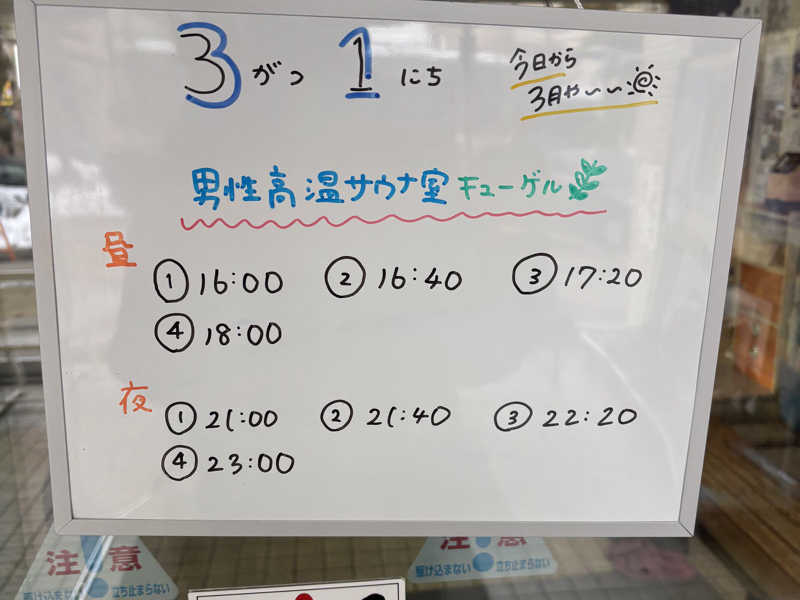 3がつ 1にち
今日から
3月や〜い
男性高温サウナ室キューゲル
昼
① 16:00 ② 16:40 ③ 17:20
④ 18:00
夜
① 21:00 ② 21:40 ③ 22:20
④ 23:00
注意
駆け込まない 立ち止まらない
注意
駆け込まない 立ち止まらない